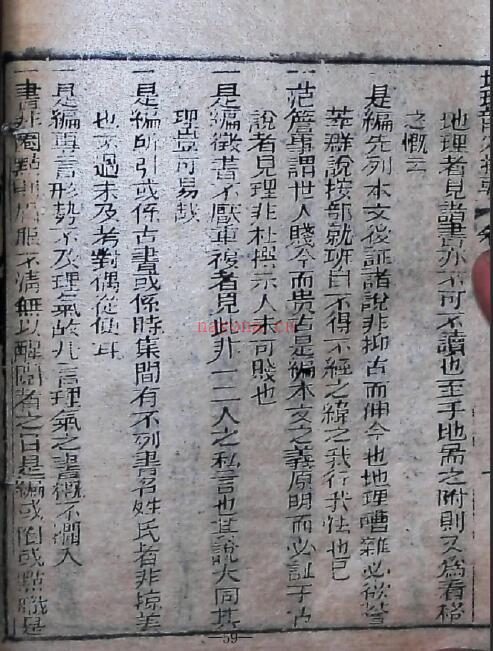 地理者見諸書亦不可不讀也至于地房之附則又爲看格
之慨云
是編先列本文後証諸說非抑古而伸今也地理嘈雜必欲登
萃群說按部就班目不得不經之緯之我行我法也已
一范詹事謂世人賤今而貴古是編本文之義原明而必証于占
說者見理非杜撰示人未可賤也
一是編徵書不厭重複者見非一二人之私言也其說大同其
理豈可易哉
一是編所引或係古書或係時集間有不列書名姓氏者非掠美
也不過未及考對偶從便耳
一是編專言形勢不及理氣故凡言理氣之書概不濶入
一書非圈點則眉眼不清無以醒閱者之目是編或圈或點職是
59
nayona.cn